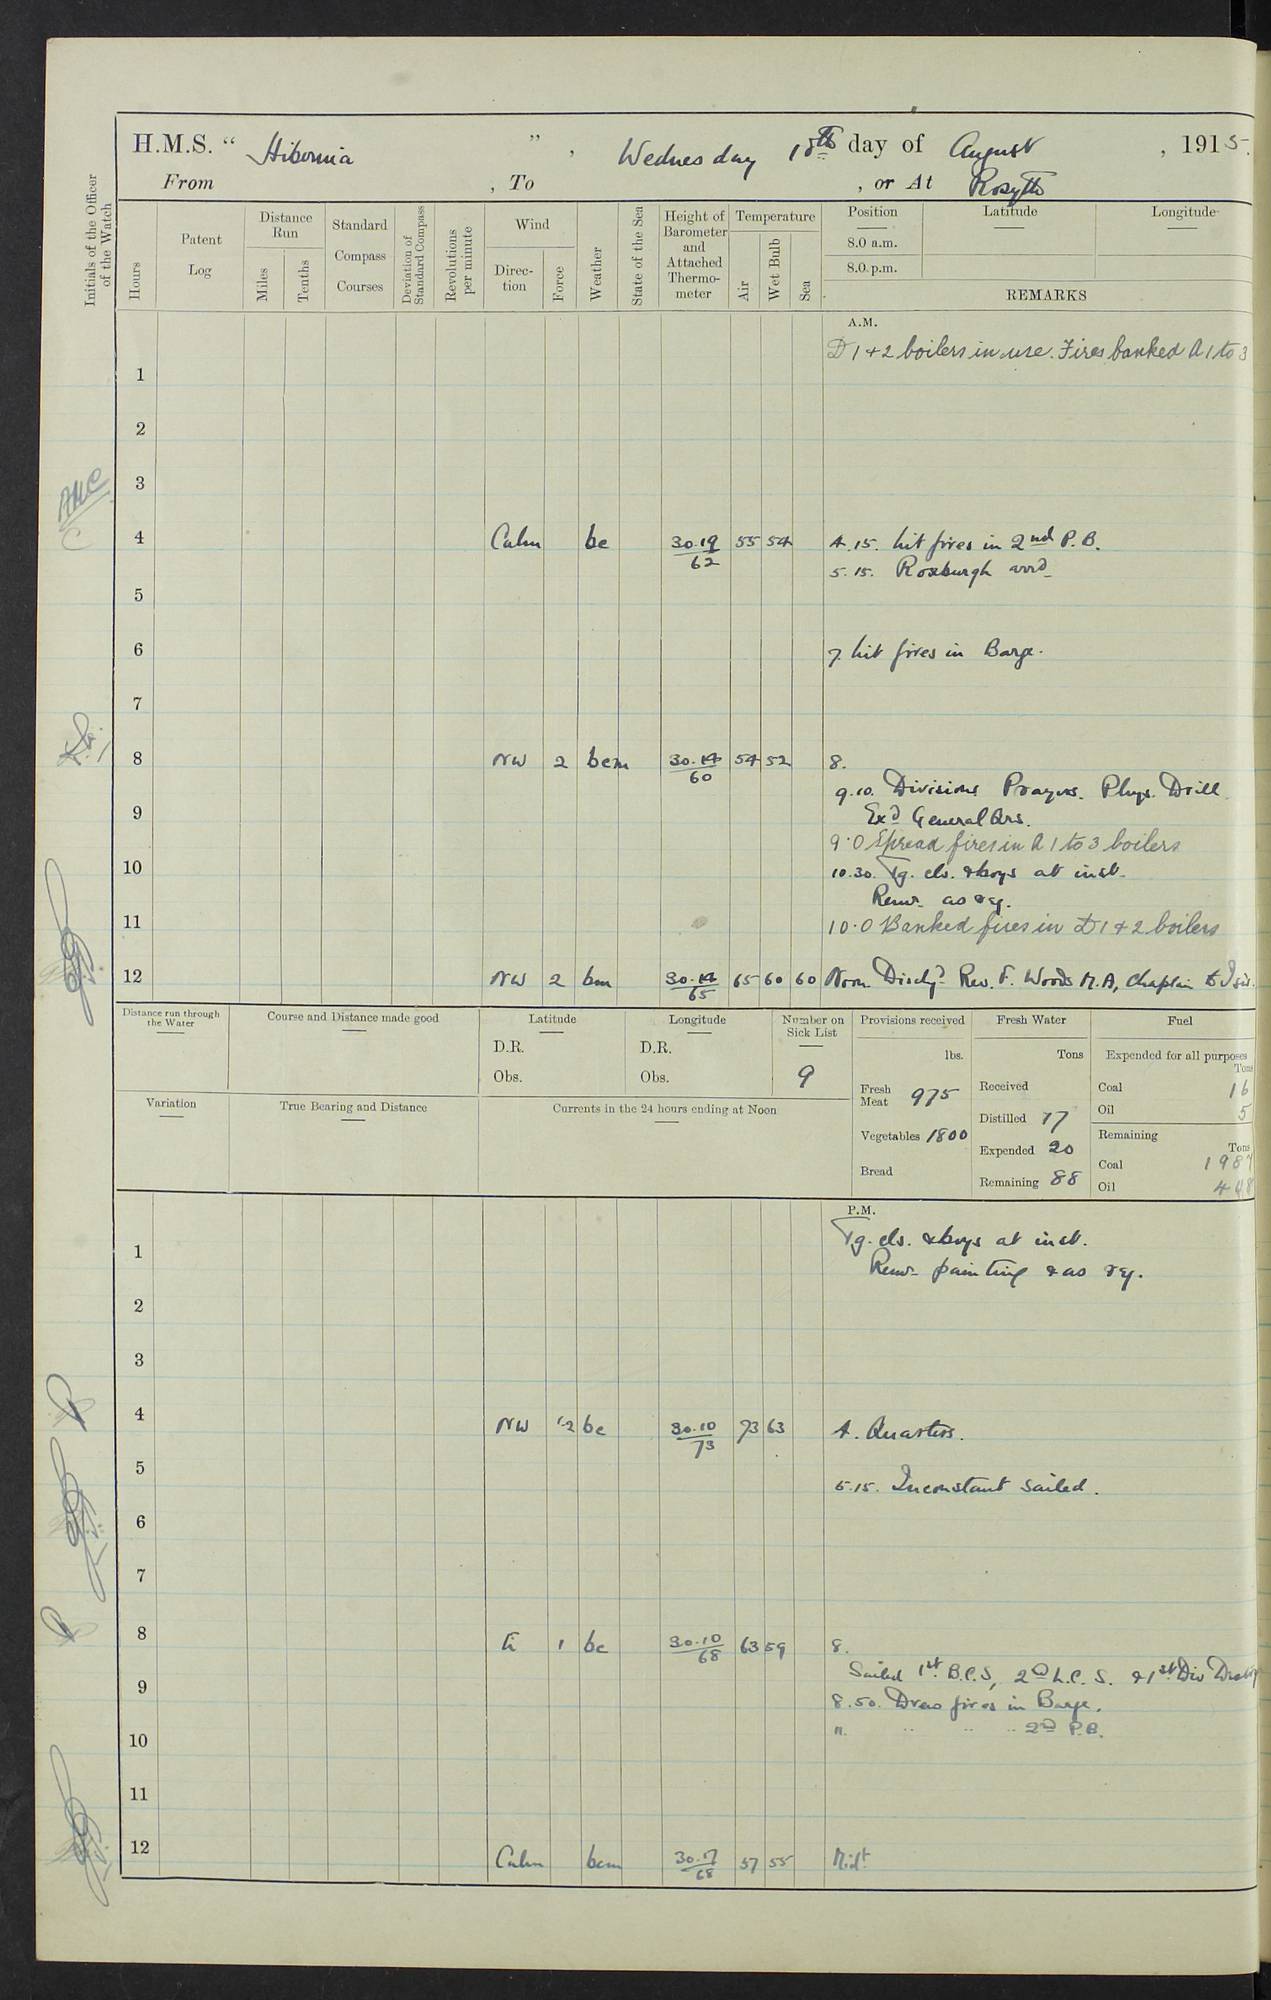 H.M.S. “ Hibernia ” , Wednesday 18th day of August , 1915.
From , To , or At Rosyth
Initials of the Officer of the Watch
Hours
Patent Log
Distance Run
Miles
Tenths
Standard Compass Courses
Deviation of Standard Compass
Revolutions per minute
Wind
Direc-tion
Force
Weather
State of the Sea
Height of Barometer and Attached Thermo-meter
Temperature
Air
Wet Bulb
Sea
Position Latitude Longitude
8.0 a.m.
8.0 p.m.
REMARKS
A.M.
D 1 + 2 boilers in use. Fires banked A 1 to 3
1
2
3
AMC
4 Calm bc 30.19/62 55 54 4.15. Lit fires in 2nd P.B.
5.15. Roxburgh arrd
5
6 7. Lit fires in Barge.
7
8 NW 2 bcm 30.14/60 54 52 8.
9.10. Divisions Prayers. Phys. Drill
9 Exd General Qrs.
9.0 Spread fires in A 1 to 3 boilers
10 10.30. Tg. cls. & boys at inst.
Remr. as req.
11 10.0 Banked fires in D 1 + 2 boilers
12 NW 2 bm 30.14/65 65 60 60 Noon. Dischd Rev. F. Woods M.A, Chaplain to
Distance run through the Water
Course and Distance made good
Latitude
D.R.
Obs.
Longitude
D.R.
Obs.
Number on Sick List
9
Provisions received
lbs.
Fresh Meat 975
Vegetables 1800
Bread
Fresh Water
Tons
Received
Distilled 17
Expended 20
Remaining 88
Fuel
Expended for all purposes
Tons
Coal 16
Oil 5
Remaining
Tons
Coal 1987
Oil 448
Variation
True Bearing and Distance
Currents in the 24 hours ending at Noon
P.M.
Tg. cls. & boys at inst.
1 Remr. painting & as req.
2
3
4 NW 1-2 bc 30.10/73 73 63 4. Quarters.
5 5.15. Inconstant sailed.
6
7
8 E 1 bc 30.10/68 63 59 8.
Sailed 1st B.C.S, 2nd L.C.S. & 1st Div
9 8.50. Drew fires in Barge.
" " " " 2nd P.B.
10
11
12 Calm bcm 30.17/68 57 55 Midt